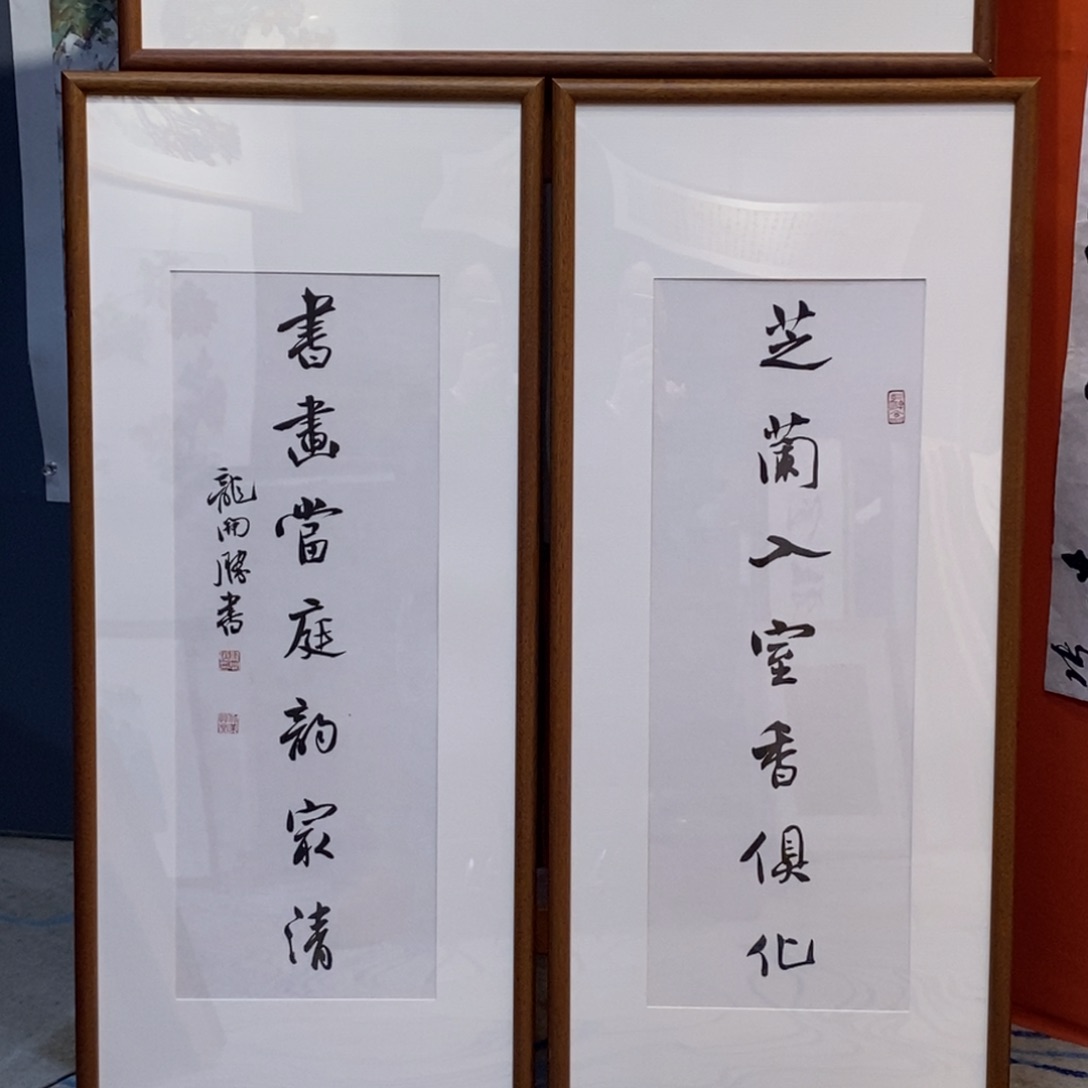 芝蘭入室香俱化
書畫當庭韵家清
龍開勝書